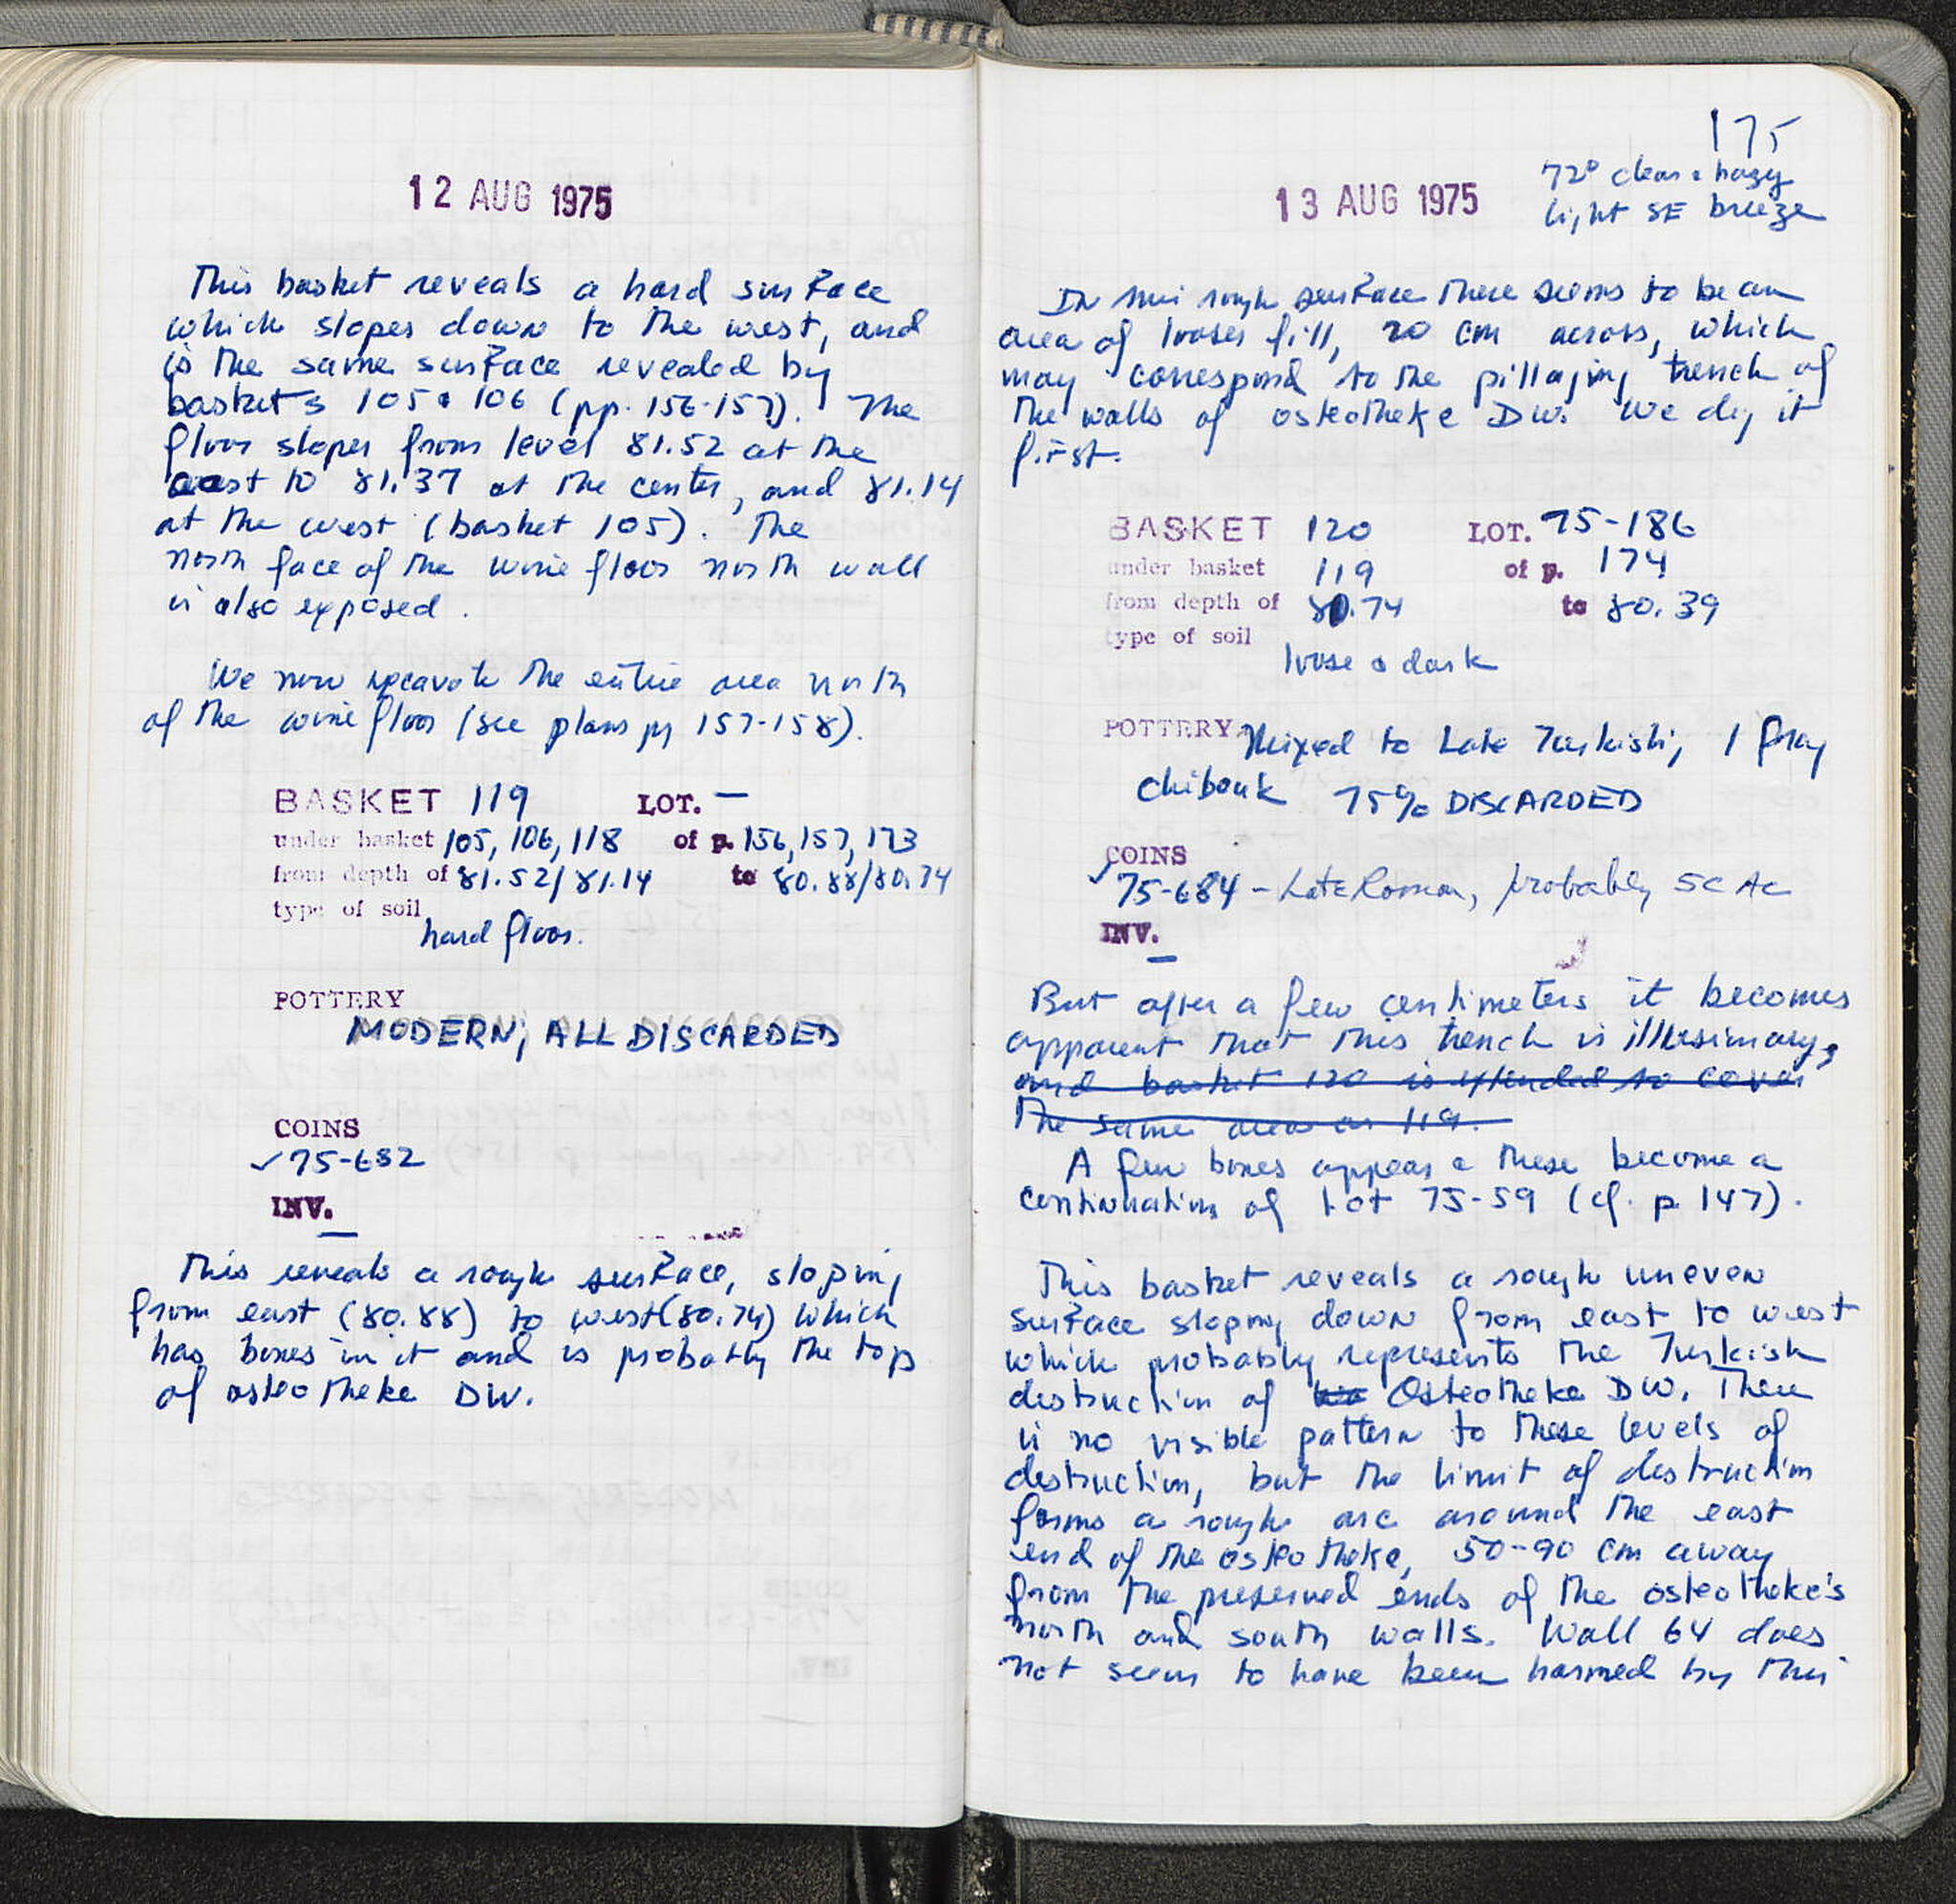 12 AUG 1975
This basket reveals a hard surface
which slopes down to the west, and
is the same surface revealed by
baskets 105 & 106 (pp. 156-157). The
floor slopes from level 81.52 at the
east to 81.37 at the center, and 81.14
at the west (basket 105). The
north face of the wine floor north wall
is also exposed.
We now excavate the entire area north
of the wine floor (see plans pp 157-158).
BASKET 119 LOT. —
under basket 105, 106, 118 of p. 156, 157, 173
from depth of 81.52/81.14 to 80.88/80.74
type of soil
hard floor.
POTTERY
MODERN; ALL DISCARDED
COINS
✓75-682
INV.
—
This reveals a rough surface, sloping
from east (80.88) to west (80.74) which
has bones in it and is probably the top
of osteotheke DW.
175
72° clear & hazy
light SE breeze
13 AUG 1975
In this rough surface there seems to be an
area of looser fill, 20 cm across, which
may correspond to the pillaging trench of
the walls of osteotheke DW. We dig it
first.
BASKET 120 LOT. 75-186
under basket 119 of p. 174
from depth of 80.74 to 80.39
type of soil
loose & dark
POTTERY Mixed to Late Turkish; 1 frag
chibouk 75% DISCARDED
COINS
✓75-684 - Late Roman, probably 5c AC
INV.
—
But after a few centimeters it becomes
apparent that this trench is illusionary,
and basket 120 is extended to cover
the same area as 119.
A few bones appear & these become a
continuation of Lot 75-59 (cf. p 147).
This basket reveals a rough uneven
surface sloping down from east to west
which probably represents the Turkish
destruction of Osteotheke DW. There
is no visible pattern to these levels of
destruction, but the limit of destruction
forms a rough arc around the east
end of the osteotheke, 50-90 cm away
from the preserved ends of the osteotheke's
north and south walls. Wall 64 does
not seem to have been harmed by this